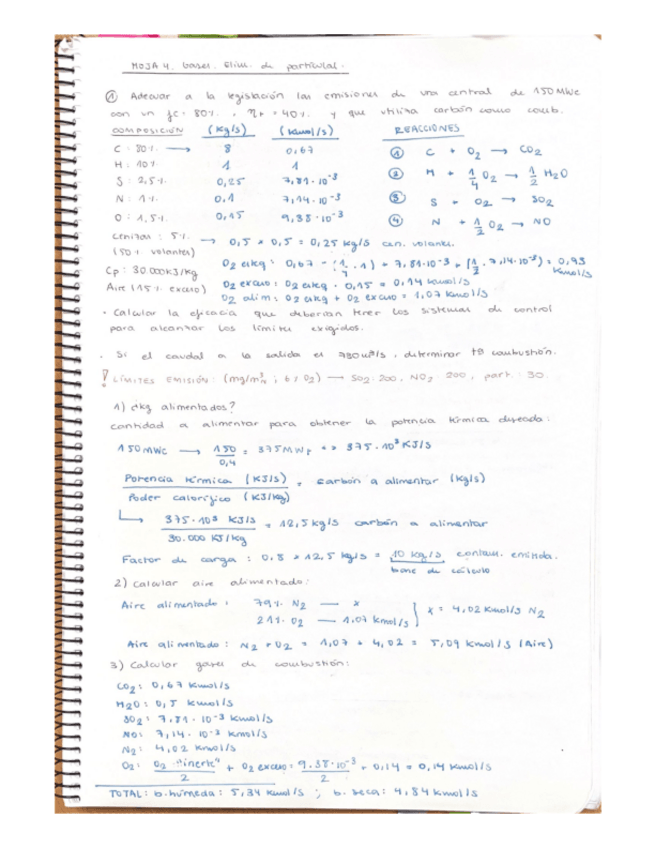 HOJA 4. Gases. Elim. de partículas.
① Adecuar a la legislación las emisiones de una central de 150 MWe
con un fc = 80%, ηt = 40% y que utiliza carbón como comb.
COMPOSICIÓN (Kg/s) (Kmol/s) REACCIONES
C : 80% → 8 0,67 ① C + O2 → CO2
H : 10% 1 1 ② H + 1/4 O2 → 1/2 H2O
S : 2,5% 0,25 7,81·10⁻³ ③ S + O2 → SO2
N : 1% 0,1 7,14·10⁻³ ④ N + 1/2 O2 → NO
O : 1,5% 0,15 9,38·10⁻³
Cenizas : 5% → 0,5 * 0,5 = 0,25 kg/s cen. volantes.
(50% volantes)
O2 estq : 0,67 + (1/4 · 1) + 7,81·10⁻³ + (1/2 · 7,14·10⁻³) = 0,93 Kmol/s
Cp : 30.000 KJ/kg
Aire (15% exceso) O2 exceso : O2 estq · 0,15 = 0,14 kmol/s
O2 alim : O2 estq + O2 exceso = 1,07 kmol/s
· Calcular la eficacia que deberían tener los sistemas de control
para alcanzar los límites exigidos.
· Si el caudal a la salida es 780 m³/s, determinar tª combustión.
! LÍMITES EMISIÓN : (mg/m³N ; 6% O2) → SO2 : 200, NO2 : 200, part. : 30.
1) ¿kg alimentados?
Cantidad a alimentar para obtener la potencia térmica deseada :
150 MWe → 150/0,4 = 375 MWt 375·10³ KJ/s
Potencia térmica (KJ/s) / Poder calorífico (KJ/kg) = carbón a alimentar (kg/s)
375·10³ KJ/s / 30.000 KJ/kg = 12,5 kg/s carbón a alimentar
Factor de carga : 0,8 * 12,5 kg/s = 10 kg/s contam. emitida.
base de cálculo
2) Calcular aire alimentado :
Aire alimentado : 79% N2 — x
21% O2 — 1,07 kmol/s } x = 4,02 Kmol/s N2
Aire alimentado : N2 + O2 = 1,07 + 4,02 = 5,09 kmol/s (Aire)
3) Calcular gases de combustión :
CO2 : 0,67 kmol/s
H2O : 0,5 kmol/s
SO2 : 7,81·10⁻³ kmol/s
NO : 7,14·10⁻³ kmol/s
N2 : 4,02 kmol/s
O2 : O2 "inerte"/2 + O2 exceso : 9,38·10⁻³/2 + 0,14 = 0,14 kmol/s
TOTAL : b. húmeda : 5,34 kmol/s ; b. seca : 4,84 kmol/s